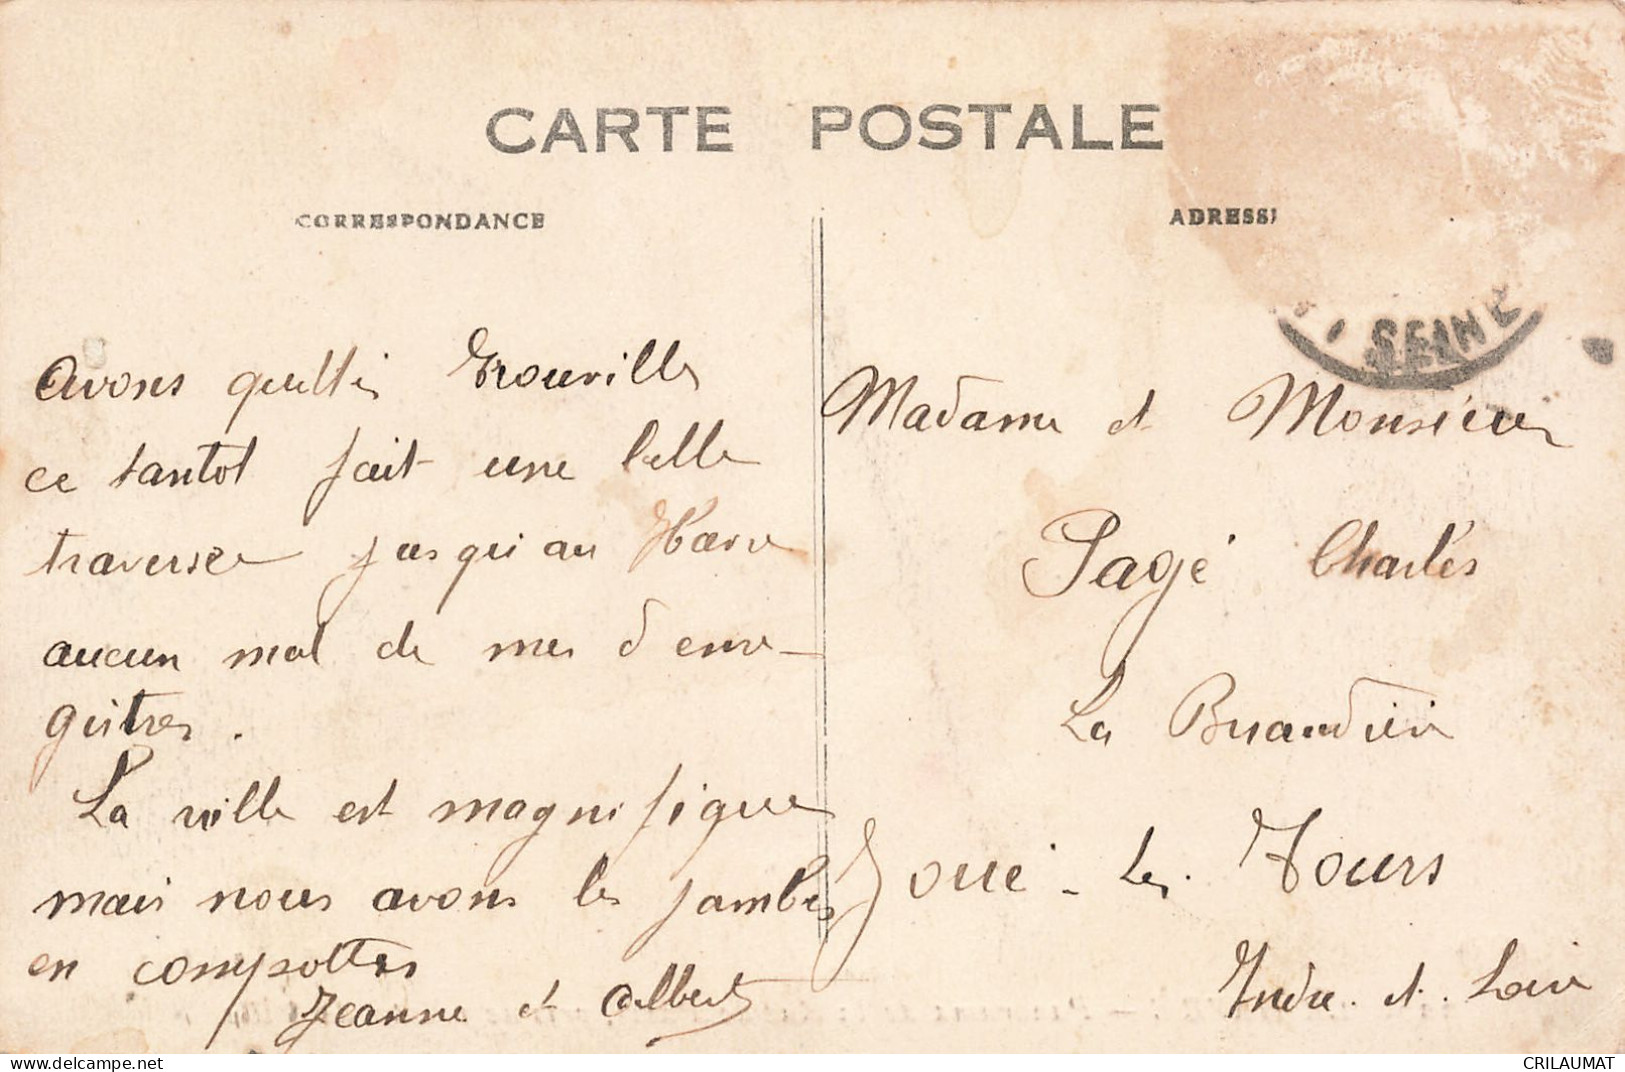 CARTE POSTALE
CORRESPONDANCE
ADRESSE
SEINE
Avons quitté Trouville
ce tantot fait une belle
traversée jusqu'au Havre
aucun mal de mer d'enre-
gistrer.
La ville est magnifique
mais nous avons les jambes
en compottes
Jeanne et Albert
Madame et Monsieur
Pagé Charles
La Buandière
Joué-les-Tours
Indre.et.Loire
delcampe.net
CRILAUMAT